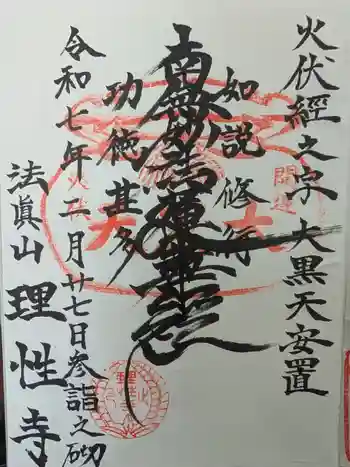 火伏經之字大黒天安置
如説修行
南無妙法蓮華經
功徳甚多
令和七年二月廿七日参詣之砌
法眞山理性寺
開運